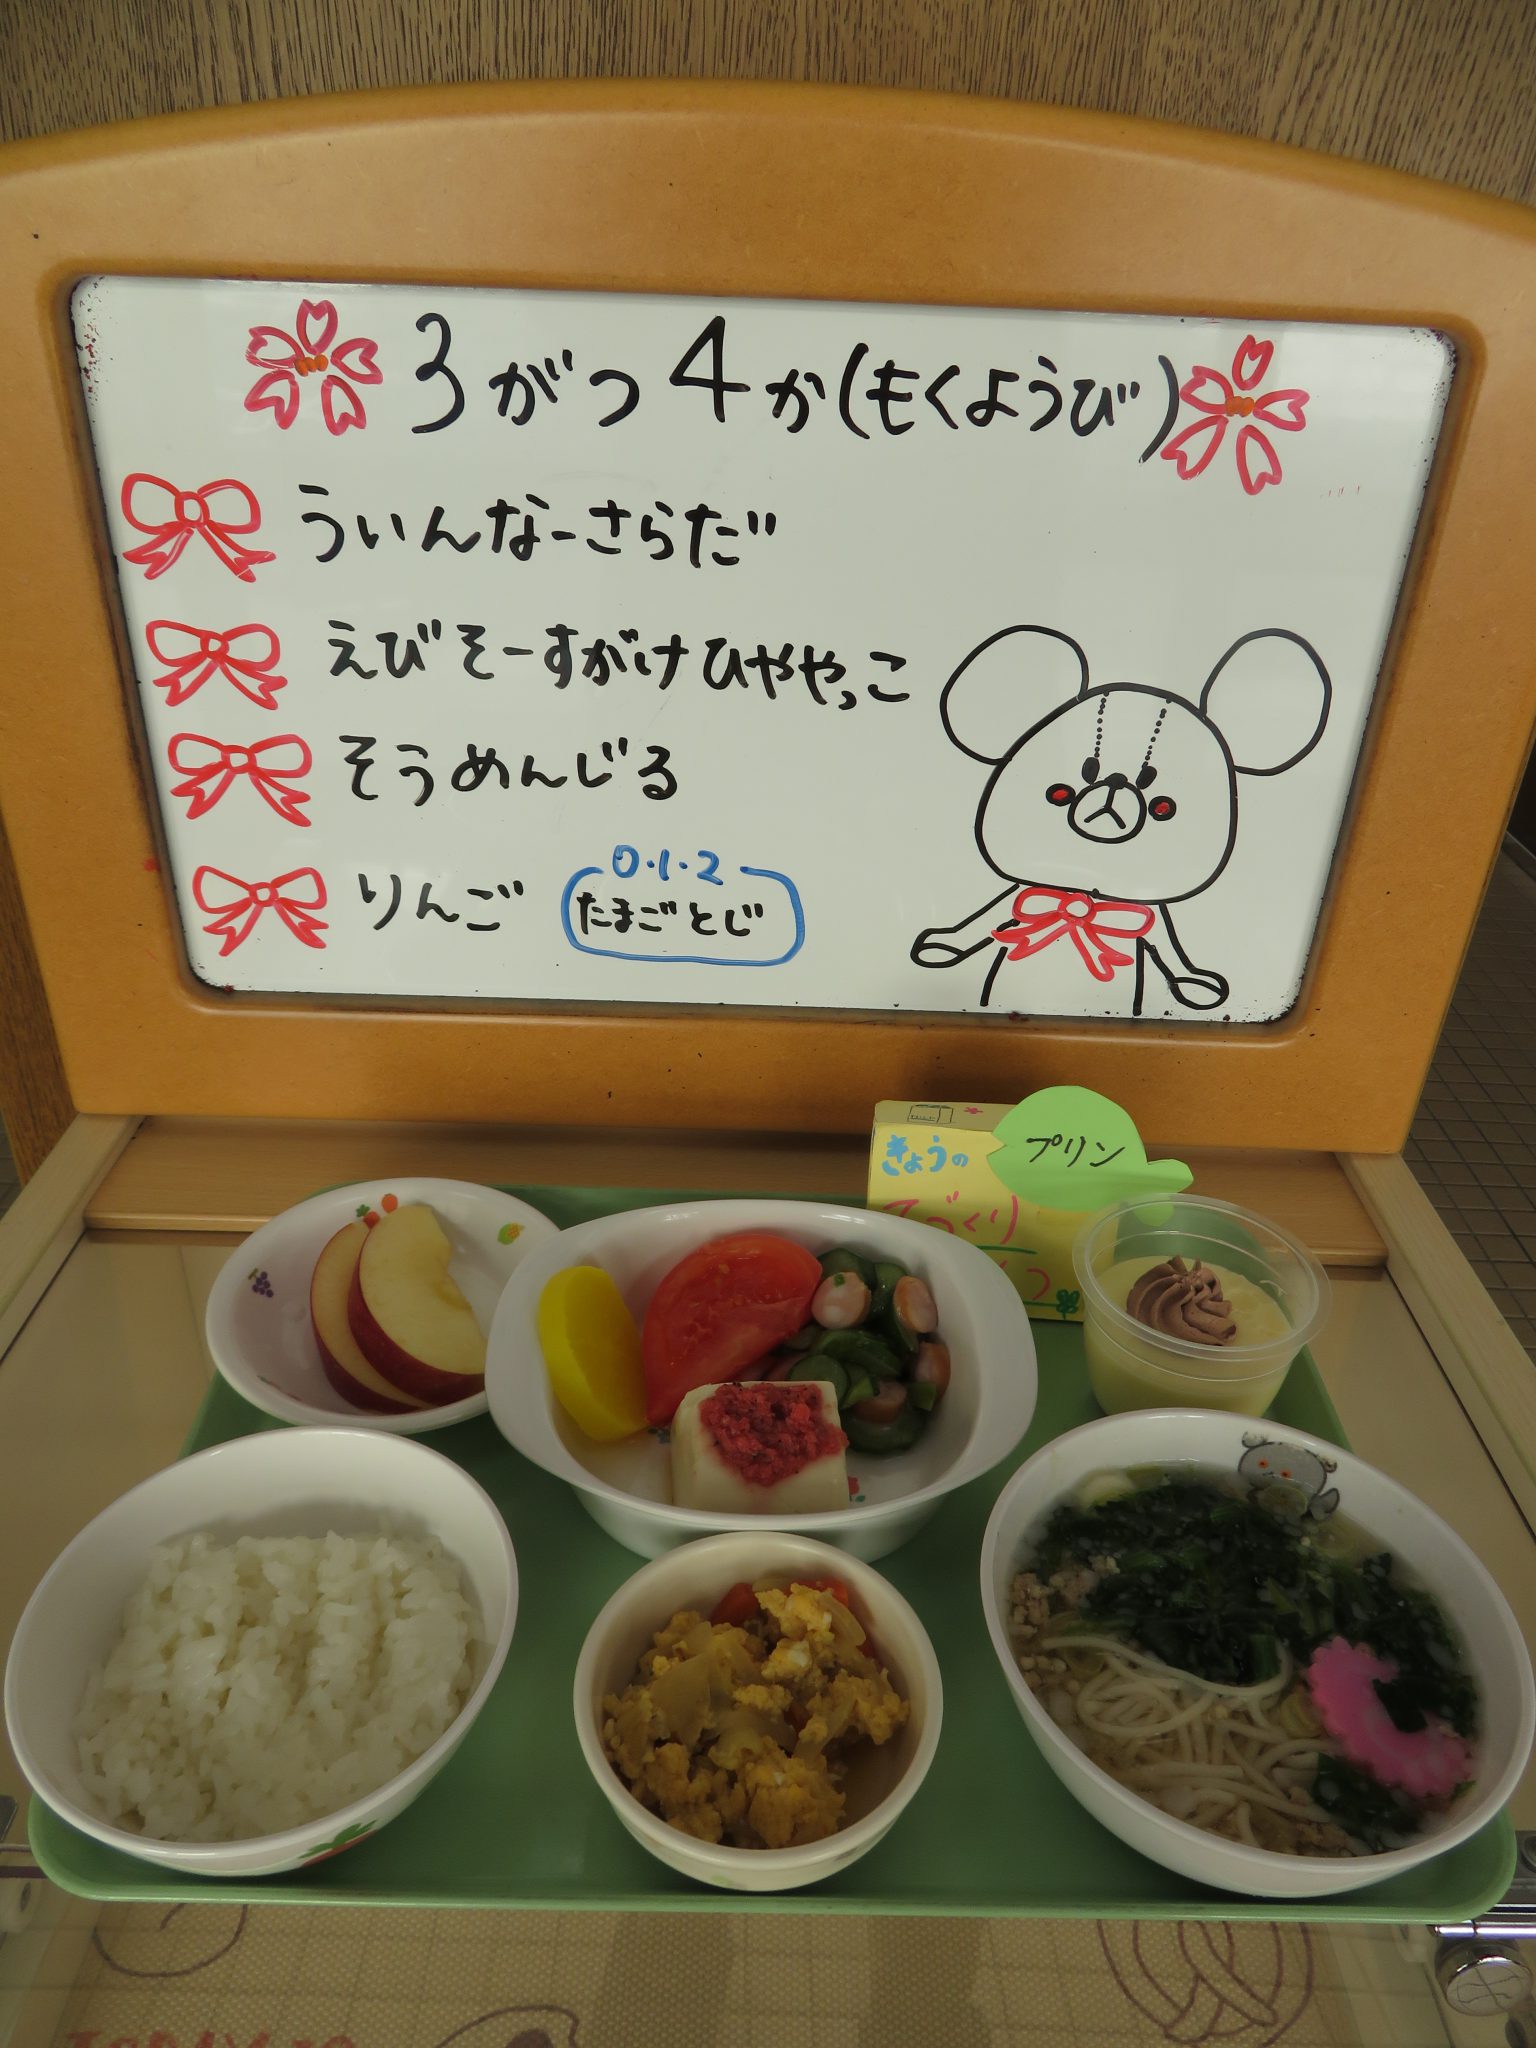 3がつ4か(もくようび)
ういんなーさらだ
えびそーすがけひややっこ
そうめんじる
りんご
0・1・2
たまごとじ
プリン
きょうの
てづくり
つ